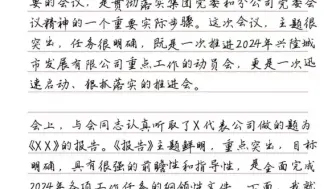 要的会议，是贯彻落实集团党委和分公司党委会
议精神的一个重要实际步骤。这次会议，主题很
突出，任务很明确，既是一次推进2024年兴隆城
市发展有限公司重点工作的动员会，更是一次迅
速启动、狠抓落实的推进会。
会上，与会同志认真听取了X代表公司做的题为
《XX》的报告。《报告》主题鲜明，重点突出，目标
明确，具有很强的前瞻性和指导性，是全面完成
2024年各项工作任务的纲领性文件。下面，我就